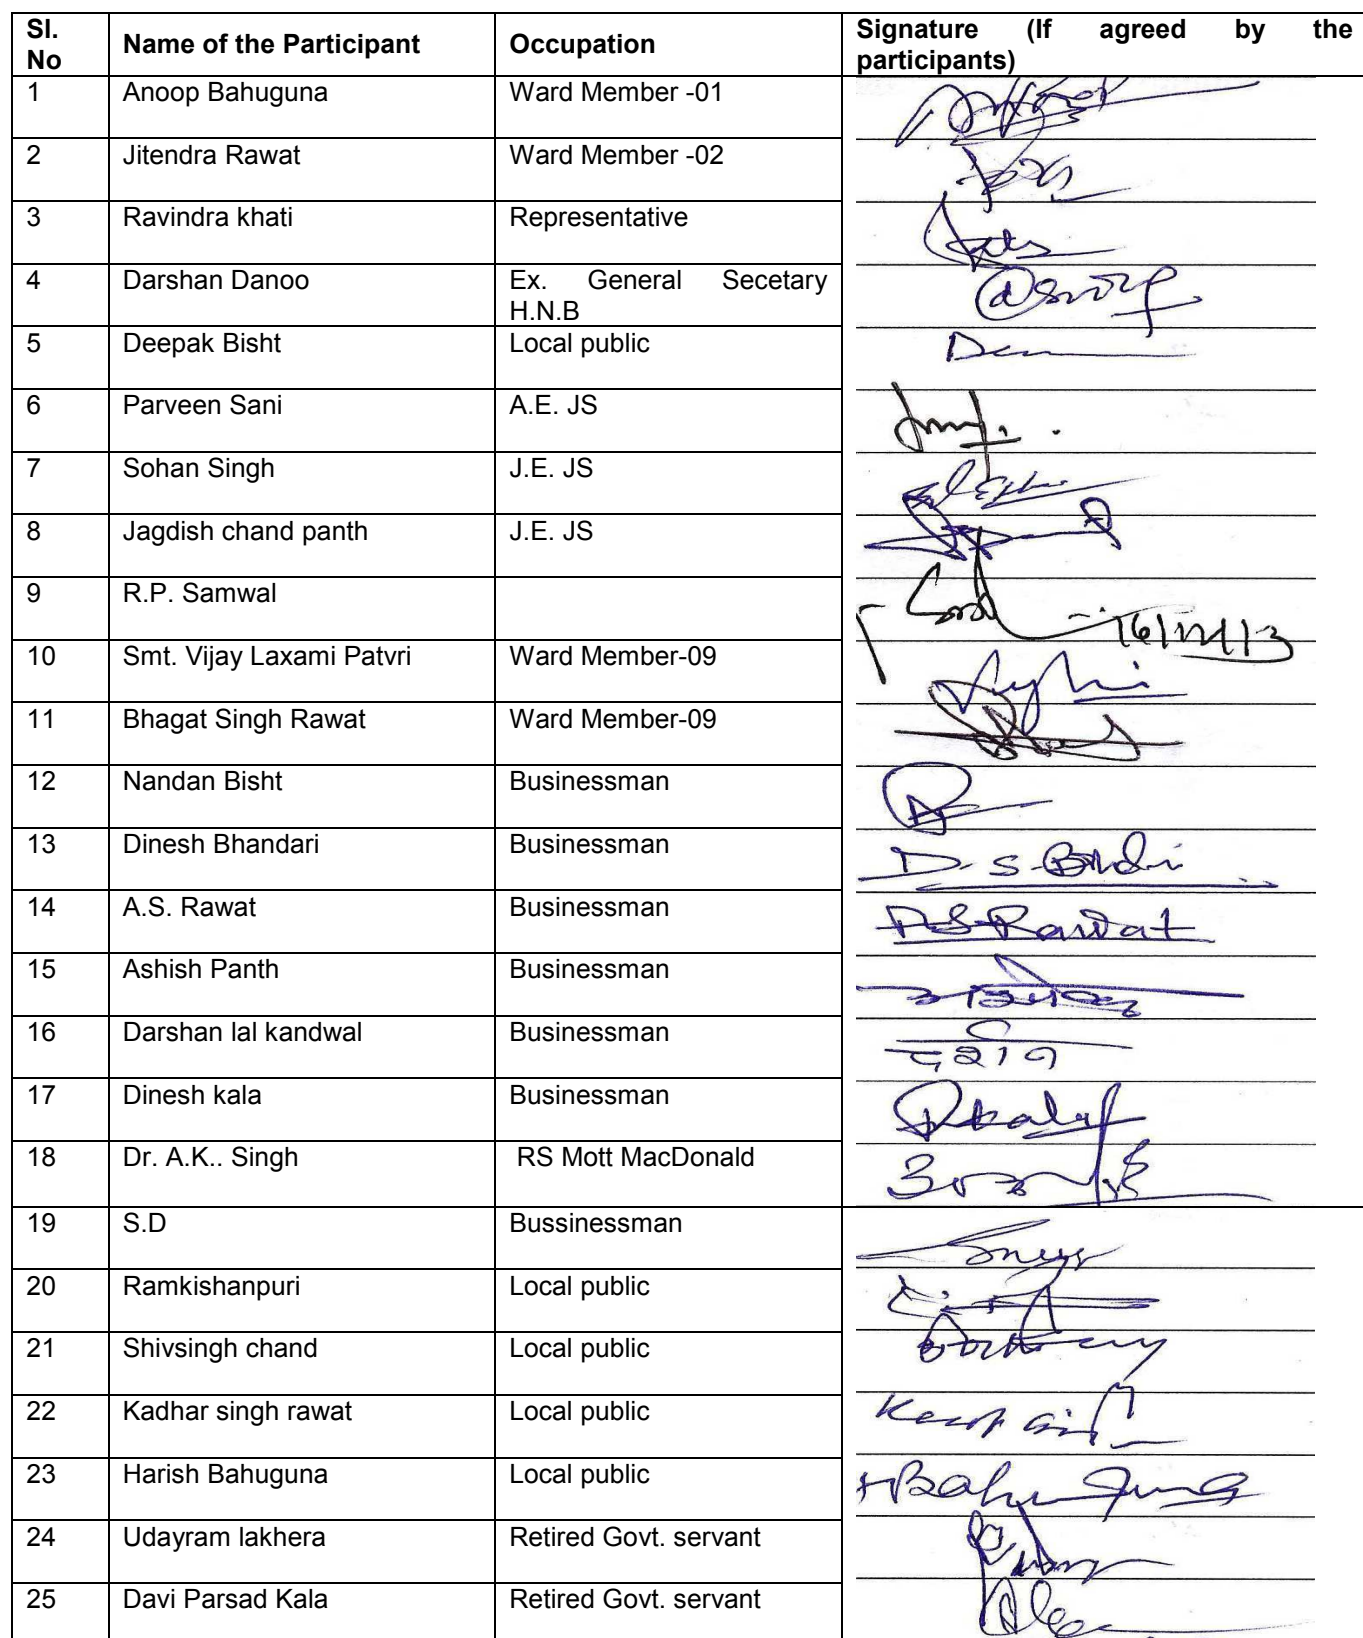 Sl. No Name of the Participant Occupation Signature (If agreed by the participants)
1 Anoop Bahuguna Ward Member -01
2 Jitendra Rawat Ward Member -02
3 Ravindra khati Representative
4 Darshan Danoo Ex. General Secetary H.N.B
5 Deepak Bisht Local public
6 Parveen Sani A.E. JS
7 Sohan Singh J.E. JS
8 Jagdish chand panth J.E. JS
9 R.P. Samwal 16/12/13
10 Smt. Vijay Laxami Patvri Ward Member-09
11 Bhagat Singh Rawat Ward Member-09
12 Nandan Bisht Businessman
13 Dinesh Bhandari Businessman
14 A.S. Rawat Businessman AS Rawat
15 Ashish Panth Businessman
16 Darshan lal kandwal Businessman
17 Dinesh kala Businessman
18 Dr. A.K.. Singh RS Mott MacDonald
19 S.D Bussinessman
20 Ramkishanpuri Local public
21 Shivsingh chand Local public
22 Kadhar singh rawat Local public
23 Harish Bahuguna Local public HBahuguna
24 Udayram lakhera Retired Govt. servant
25 Davi Parsad Kala Retired Govt. servant